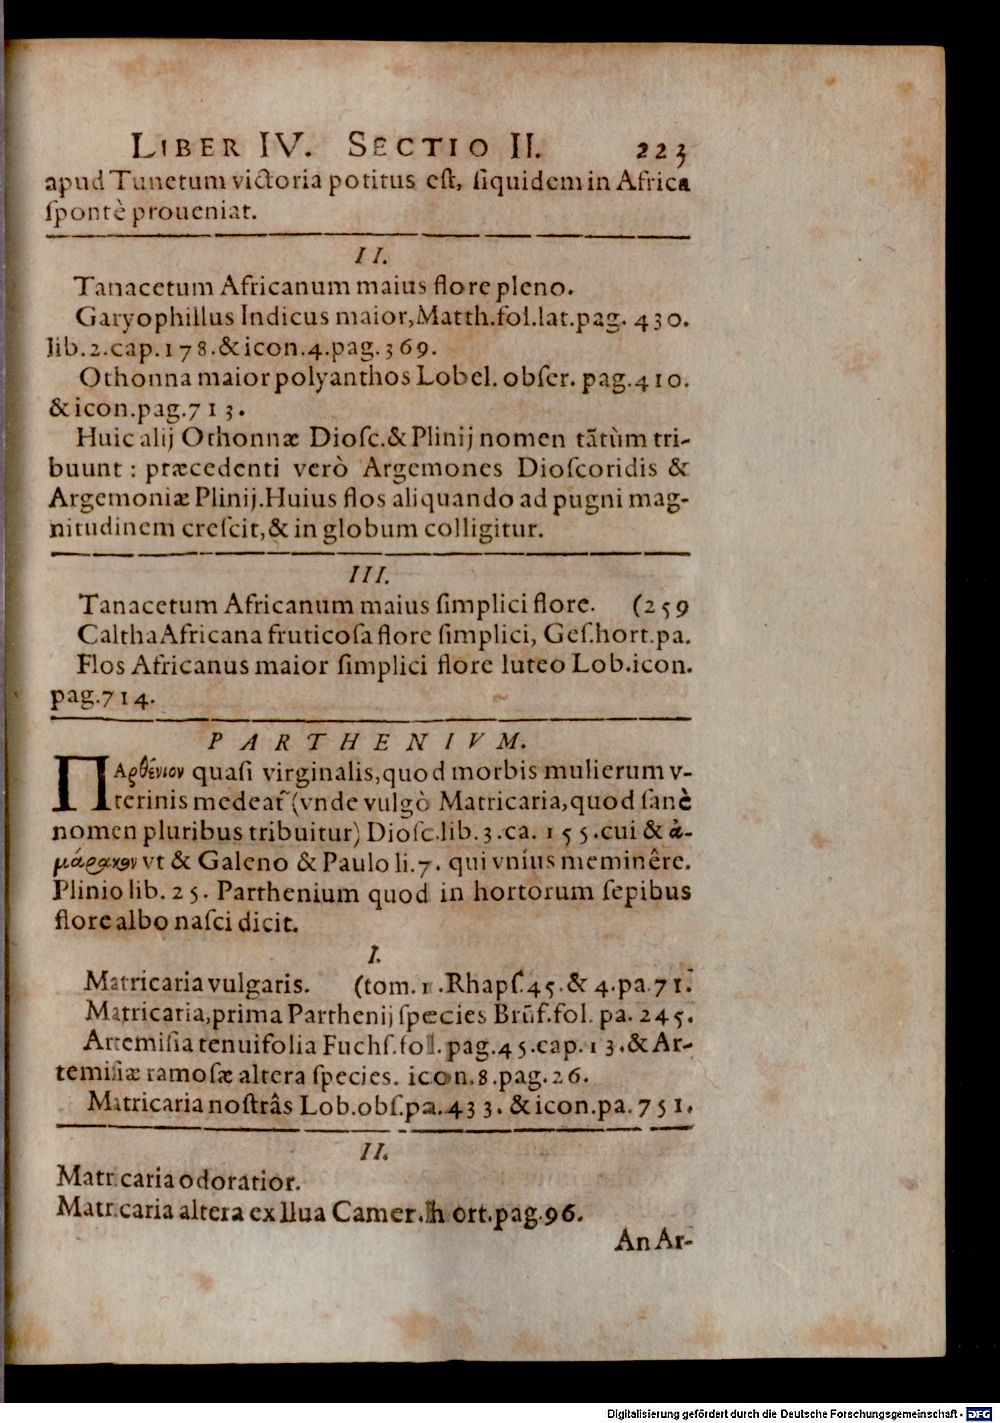 LIBER IV. SECTIO II. 223
apud Tunetum victoria potitus est, siquidem in Africa
spontè proueniat.
II.
Tanacetum Africanum maius flore pleno.
Garyophillus Indicus maior, Matth.fol.lat.pag. 430.
lib.2.cap.178.&icon.4.pag.369.
Othonna maior polyanthos Lobel. obser. pag.410.
& icon.pag.713.
Huic alij Othonnæ Diosc.& Plinij nomen tãtùm tri-
buunt : præcedenti verò Argemones Dioscoridis &
Argemoniæ Plinij. Huius flos aliquando ad pugni mag-
nitudinem crescit, & in globum colligitur.
III.
Tanacetum Africanum maius simplici flore. (259
Caltha Africana fruticosa flore simplici, Ges.hort.pa.
Flos Africanus maior simplici flore luteo Lob.icon.
pag.714.
PARTHENIVM.
ΠΑρθένιον quasi virginalis, quod morbis mulierum v-
terinis medeat᷑ (vnde vulgò Matricaria, quod sanè
nomen pluribus tribuitur) Diosc.lib.3.ca. 155. cui & ἀ-
μάρακον vt & Galeno & Paulo li.7. qui vníus meminêre.
Plinio lib. 25. Parthenium quod in hortorum sepibus
flore albo nasci dicit.
I.
Matricaria vulgaris. (tom. 1.Rhaps.45.& 4.pa.71.
Matricaria, prima Parthenij species Brũf.fol. pa. 245.
Artemisia tenuifolia Fuchs.fol. pag.45.cap.13.& Ar-
temisiæ ramosæ altera species. icon.8.pag.26.
Matricaria nostrâs Lob.obs.pa.433. & icon.pa.751.
II.
Matricaria odoratior.
Matricaria altera ex Ilua Camer.hort.pag.96.
An Ar-
Digitalisierung gefördert durch die Deutsche Forschungsgemeinschaft - DFG